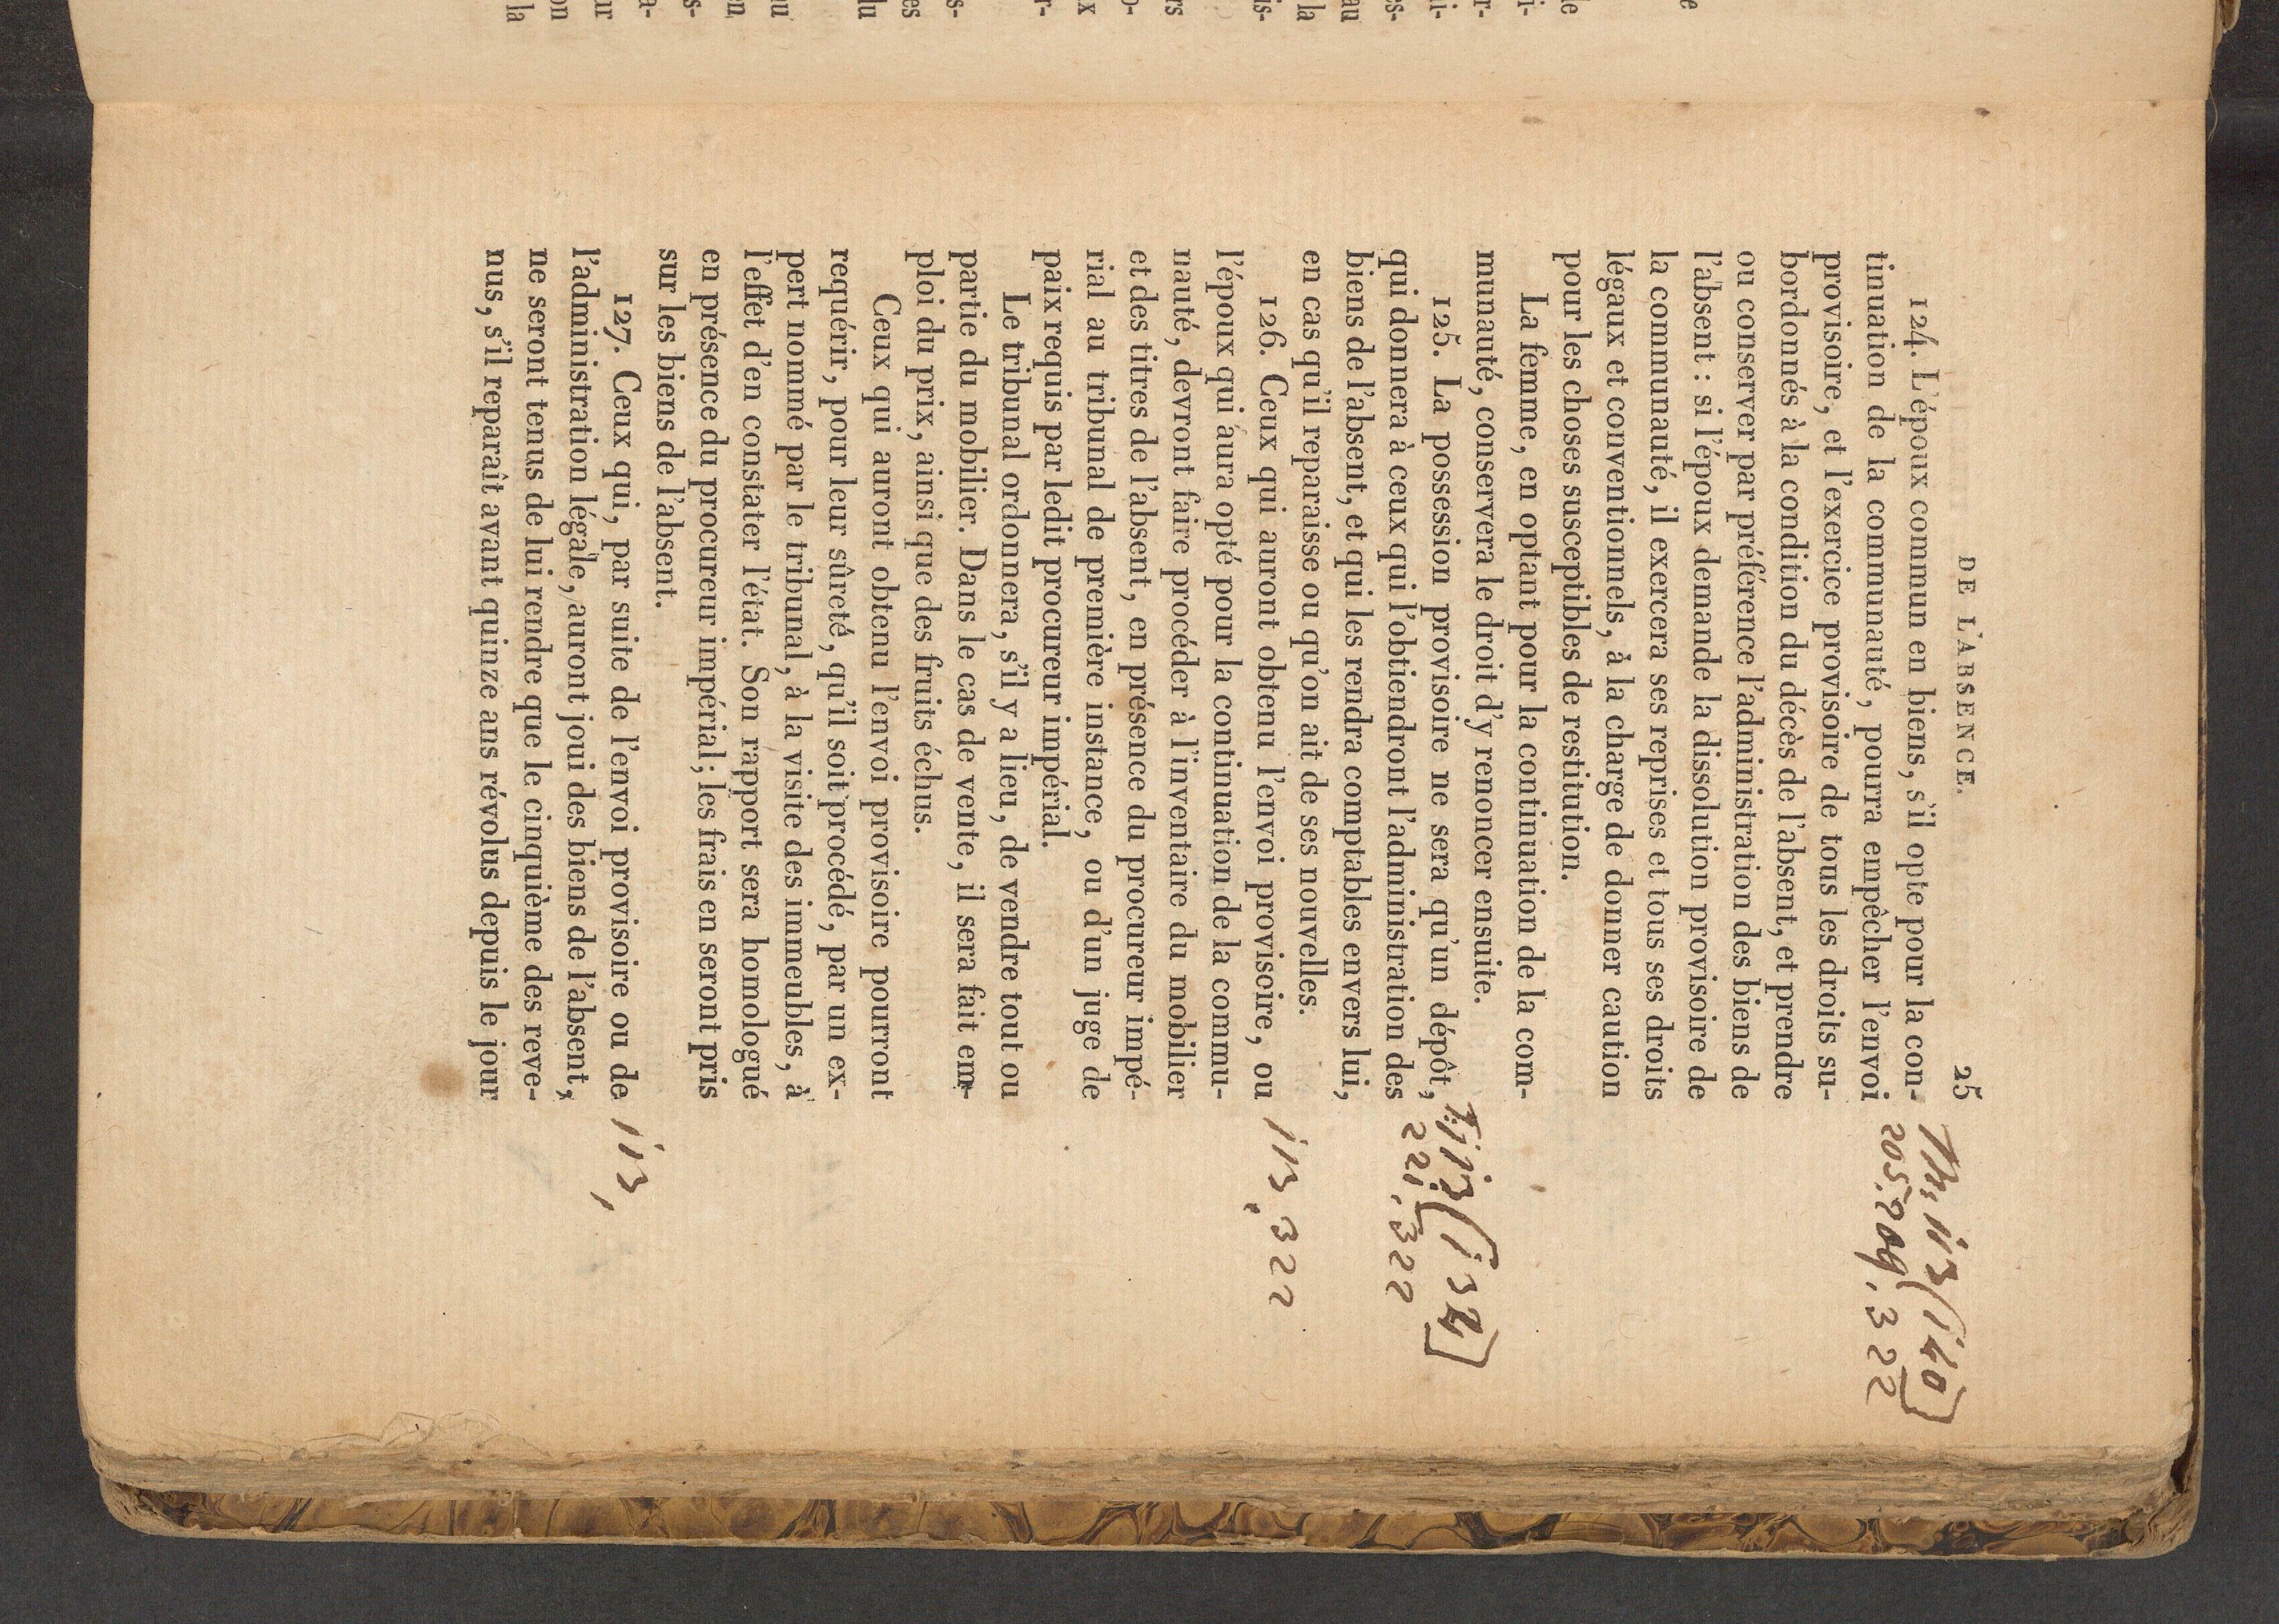 DE L'ABSENCE. 25
124. L'époux commun en biens, s'il opte pour la con-
tinuation de la communauté, pourra empêcher l'envoi
provisoire, et l'exercice provisoire de tous les droits su-
bordonnés à la condition du décès de l'absent, et prendre
ou conserver par préférence l'administration des biens de
l'absent : si l'époux demande la dissolution provisoire de
la communauté, il exercera ses reprises et tous ses droits
légaux et conventionnels, à la charge de donner caution
pour les choses susceptibles de restitution.
La femme, en optant pour la continuation de la com-
munauté, conservera le droit d'y renoncer ensuite.
125. La possession provisoire ne sera qu'un dépôt,
qui donnera à ceux qui l'obtiendront l'administration des
biens de l'absent, et qui les rendra comptables envers lui,
en cas qu'il reparaisse ou qu'on ait de ses nouvelles.
126. Ceux qui auront obtenu l'envoi provisoire, ou
l'époux qui aura opté pour la continuation de la commu-
nauté, devront faire procéder à l'inventaire du mobilier
et des titres de l'absent, en présence du procureur impé-
rial au tribunal de première instance, ou d'un juge de
paix requis par ledit procureur impérial.
Le tribunal ordonnera, s'il y a lieu, de vendre tout ou
partie du mobilier. Dans le cas de vente, il sera fait em-
ploi du prix, ainsi que des fruits échus.
Ceux qui auront obtenu l'envoi provisoire pourront
requérir, pour leur sûreté, qu'il soit procédé, par un ex-
pert nommé par le tribunal, à la visite des immeubles, à
l'effet d'en constater l'état. Son rapport sera homologué
en présence du procureur impérial; les frais en seront pris
sur les biens de l'absent.
127. Ceux qui, par suite de l'envoi provisoire ou de
l'administration légale, auront joui des biens de l'absent,
ne seront tenus de lui rendre que le cinquième des reve-
nus, s'il reparaît avant quinze ans révolus depuis le jour
113 (140)
205. 209. 322
113 (132)
221. 322
113. 322
113,